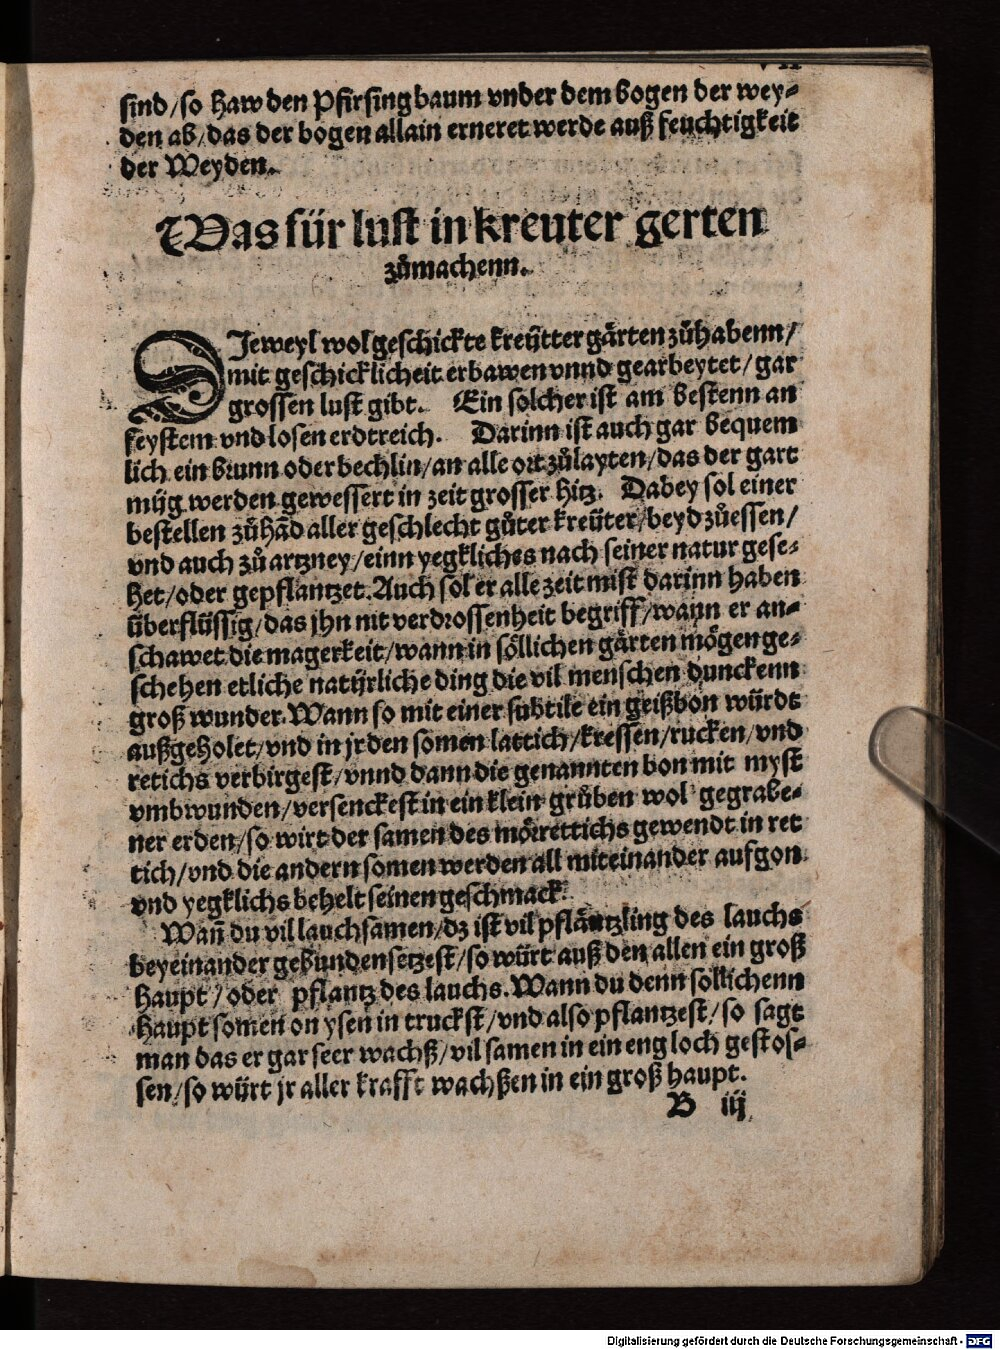 sind/so haw den Pfirsingbaum vnder dem bogen der wey-
den ab/das der bogen allain erneret werde auß feuchtigkeit
der Weyden.
Was für lust in kreuter gerten
zůmachenn.
DJeweyl wol geschickte kreütter gärten zůhabenn/
mit geschicklicheit erbawen vnnd gearbeytet/gar
grossen lust gibt. Ein solcher ist am bestenn an
feystem vnd losen erdtreich. Darinn ist auch gar bequem
lich ein brunn oder bechlin/an alle ort zůlayten/das der gart
müg werden gewessert in zeit grosser hitz. Dabey sol einer
bestellen zůhãd aller geschlecht gůter kreüter/beyd zůessen/
vnd auch zů artzney/einn yegkliches nach seiner natur gese-
het/oder gepflantzet. Auch sol er alle zeit mist darinn haben
überflüssig/das jhn nit verdrossenheit begriff/wann er an-
schawet die magerkeit/wann in söllichen gärten mögen ge-
schehen etliche natürliche ding die vil menschen dunckenn
groß wunder. Wann so mit einer subtile ein geißbon würdt
außgeholet/vnd in jr den somen lattich/kressen/rucken/vnd
retichs verbirgest/vnnd dann die genannten bon mit myst
vmbwunden/versenckest in ein klein grůben wol gegrabe-
ner erden/so wirt der samen des mörrettichs gewendt in ret
tich/vnd die andern somen werden all miteinander aufgon
vnd yegklichs behelt seinen geschmack.
Wañ du vil lauchsamen/dz ist vil pfläntzling des lauchs
beyeinander gebunden setzest/so würt auß den allen ein groß
haupt/oder pflantz des lauchs. Wann du denn sollichenn
haupt somen on ysen in truckst/vnd also pflantzest/so sagt
man das er gar seer wachß/vil samen in ein eng loch gestos-
sen/so würt jr aller krafft wachßen in ein groß haupt.
B iij
Digitalisierung gefördert durch die Deutsche Forschungsgemeinschaft - DFG